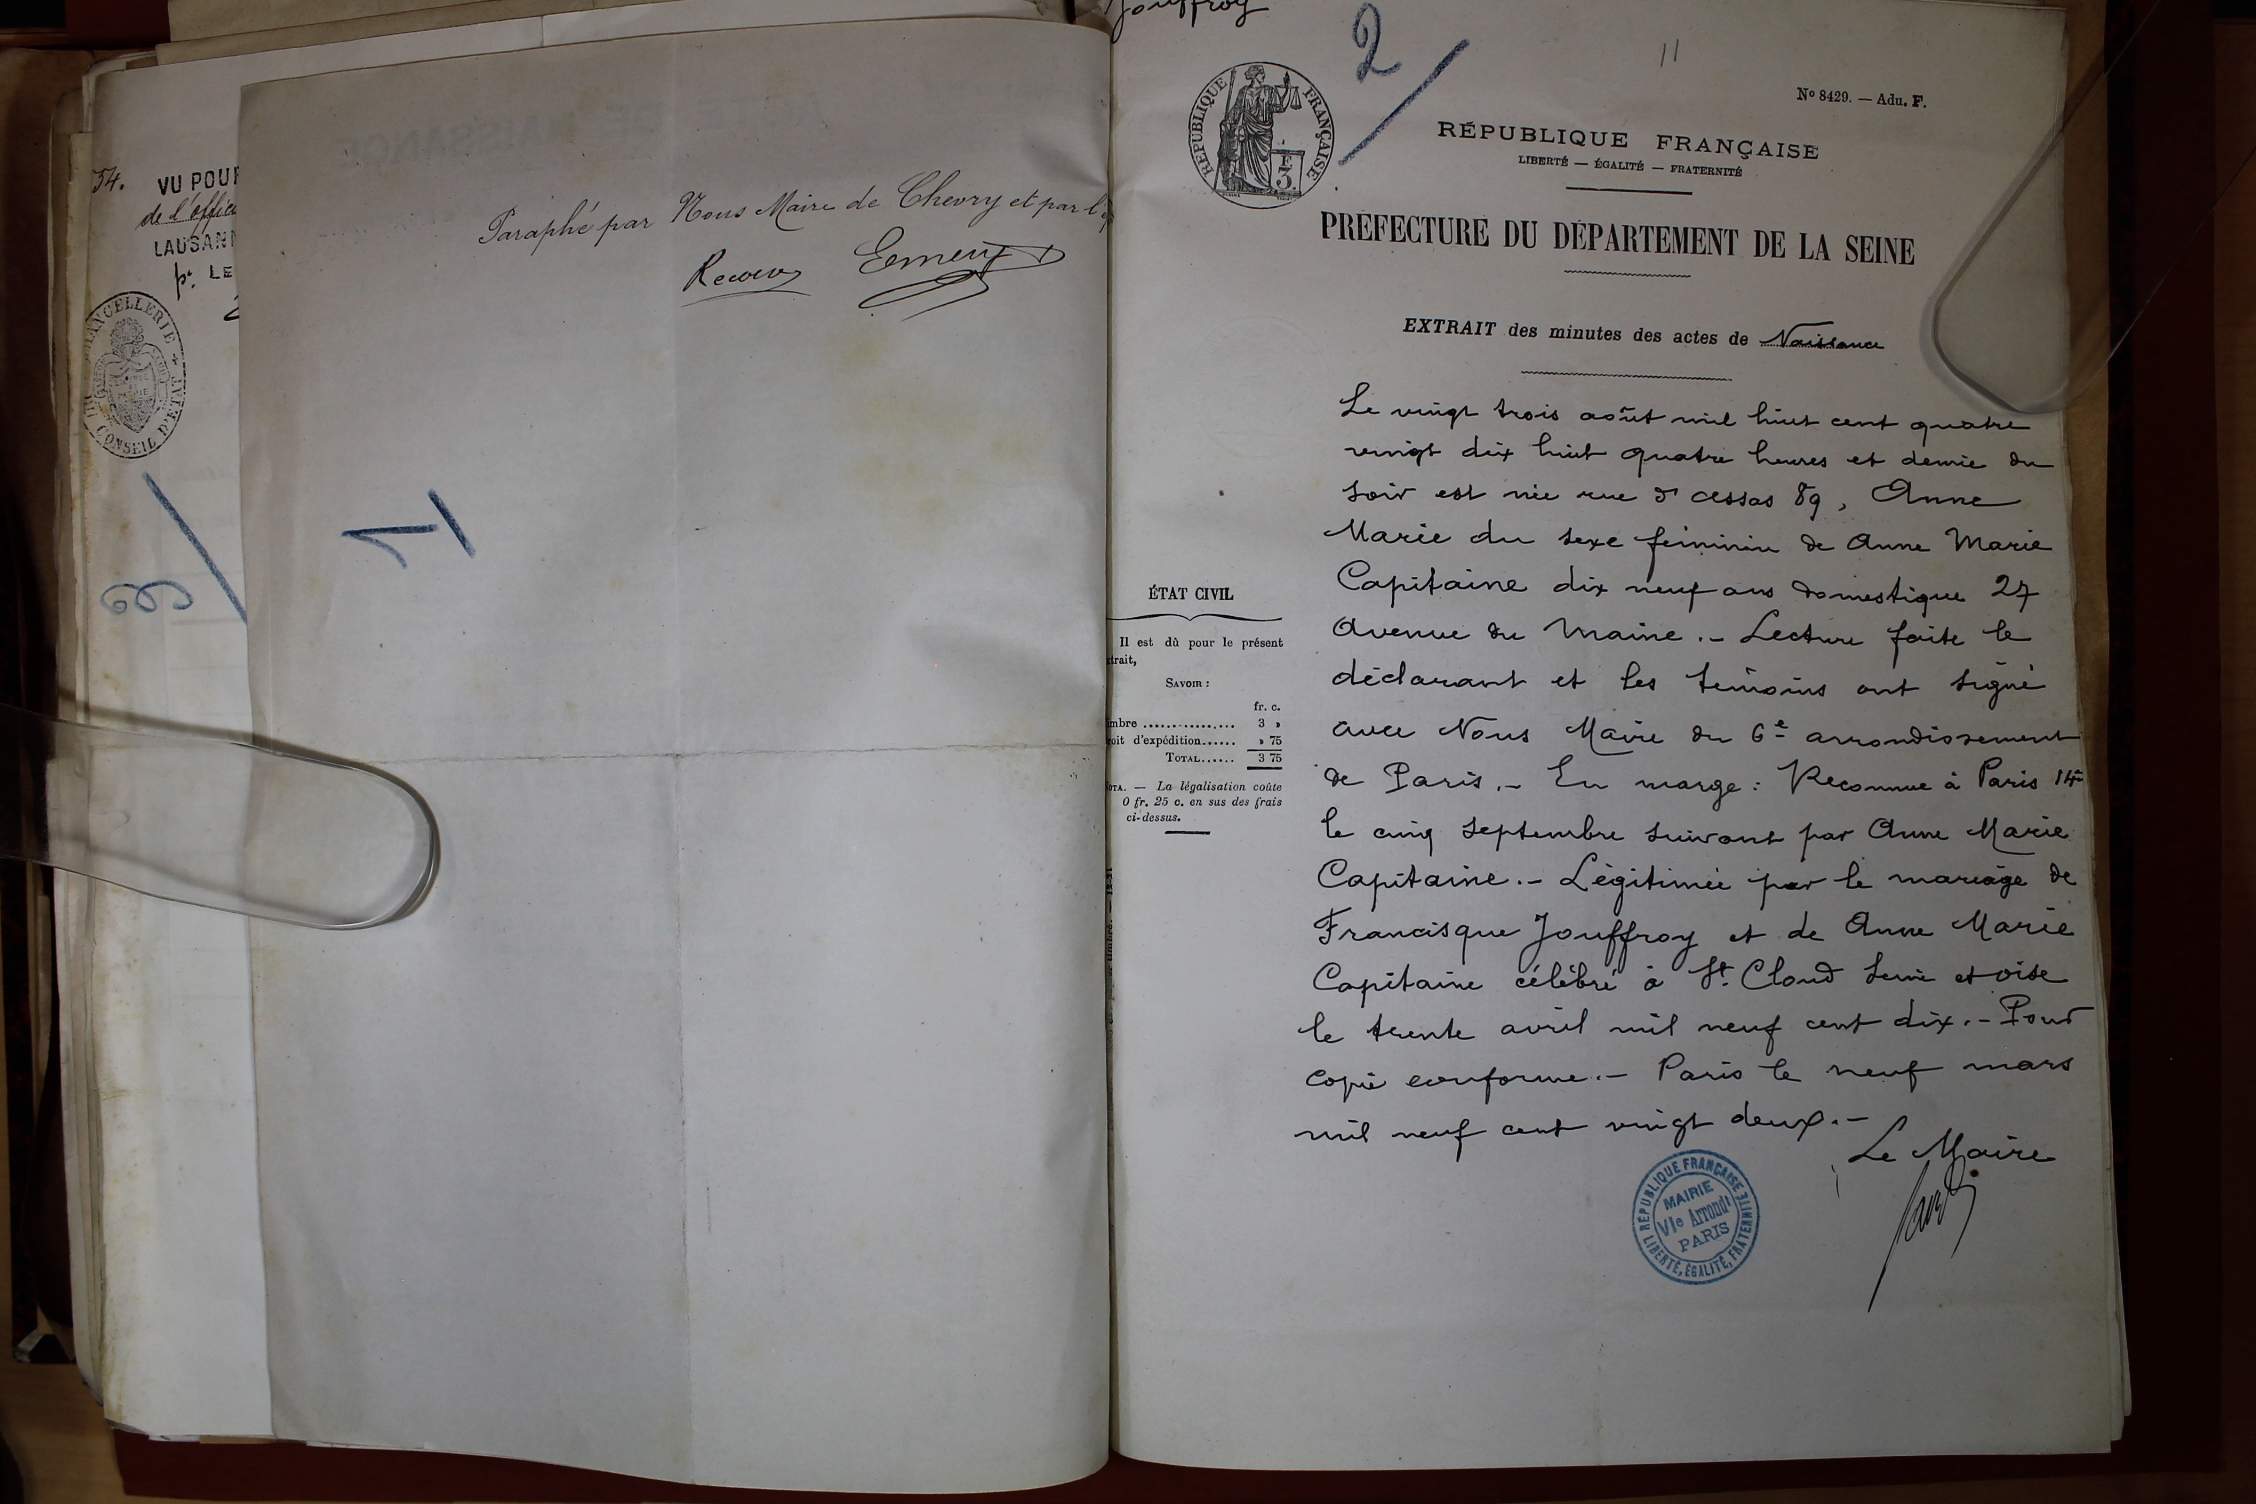 54.
VU POUR
de l'office
LAUSANN
p. LE
CHANCELLERIE
CONSEIL D'ETAT
8
Paraphé par Nous Maire de Chevry et par l'
1
Jouffroy
2
11
RÉPUBLIQUE FRANÇAISE
3
Nº 8429. — Adu. F.
RÉPUBLIQUE FRANÇAISE
LIBERTÉ — ÉGALITÉ — FRATERNITÉ
PRÉFECTURE DU DÉPARTEMENT DE LA SEINE
EXTRAIT des minutes des actes de Naissance
Le vingt trois août mil huit cent quatre
vingt dix huit quatre heures et demie du
soir est née rue d'assas 89, Anne
Marie du sexe féminin de Anne Marie
Capitaine dix neuf ans domestique 27
avenue du Maine.- Lecture faite le
déclarant et les témoins ont signé
avec Nous Maire du 6e arrondissement
de Paris.- En marge : Reconnue à Paris 14e
le cinq septembre suivant par Anne Marie
Capitaine.- Légitimée par le mariage de
Francisque Jouffroy et de Anne Marie
Capitaine célébré à St. Cloud Seine et oise
le trente avril mil neuf cent dix.- Pour
copie conforme.- Paris le neuf mars
mil neuf cent vingt deux.-
Le Maire
RÉPUBLIQUE FRANÇAISE
MAIRIE
VIe Arrondt
PARIS
LIBERTÉ, ÉGALITÉ, FRATERNITÉ
ÉTAT CIVIL
Il est dû pour le présent
trait,
SAVOIR :
fr. c.
imbre ............... 3 »
roit d'expédition...... » 75
TOTAL...... 3 75
NOTA. — La légalisation coûte
0 fr. 25 c. en sus des frais
ci-dessus.